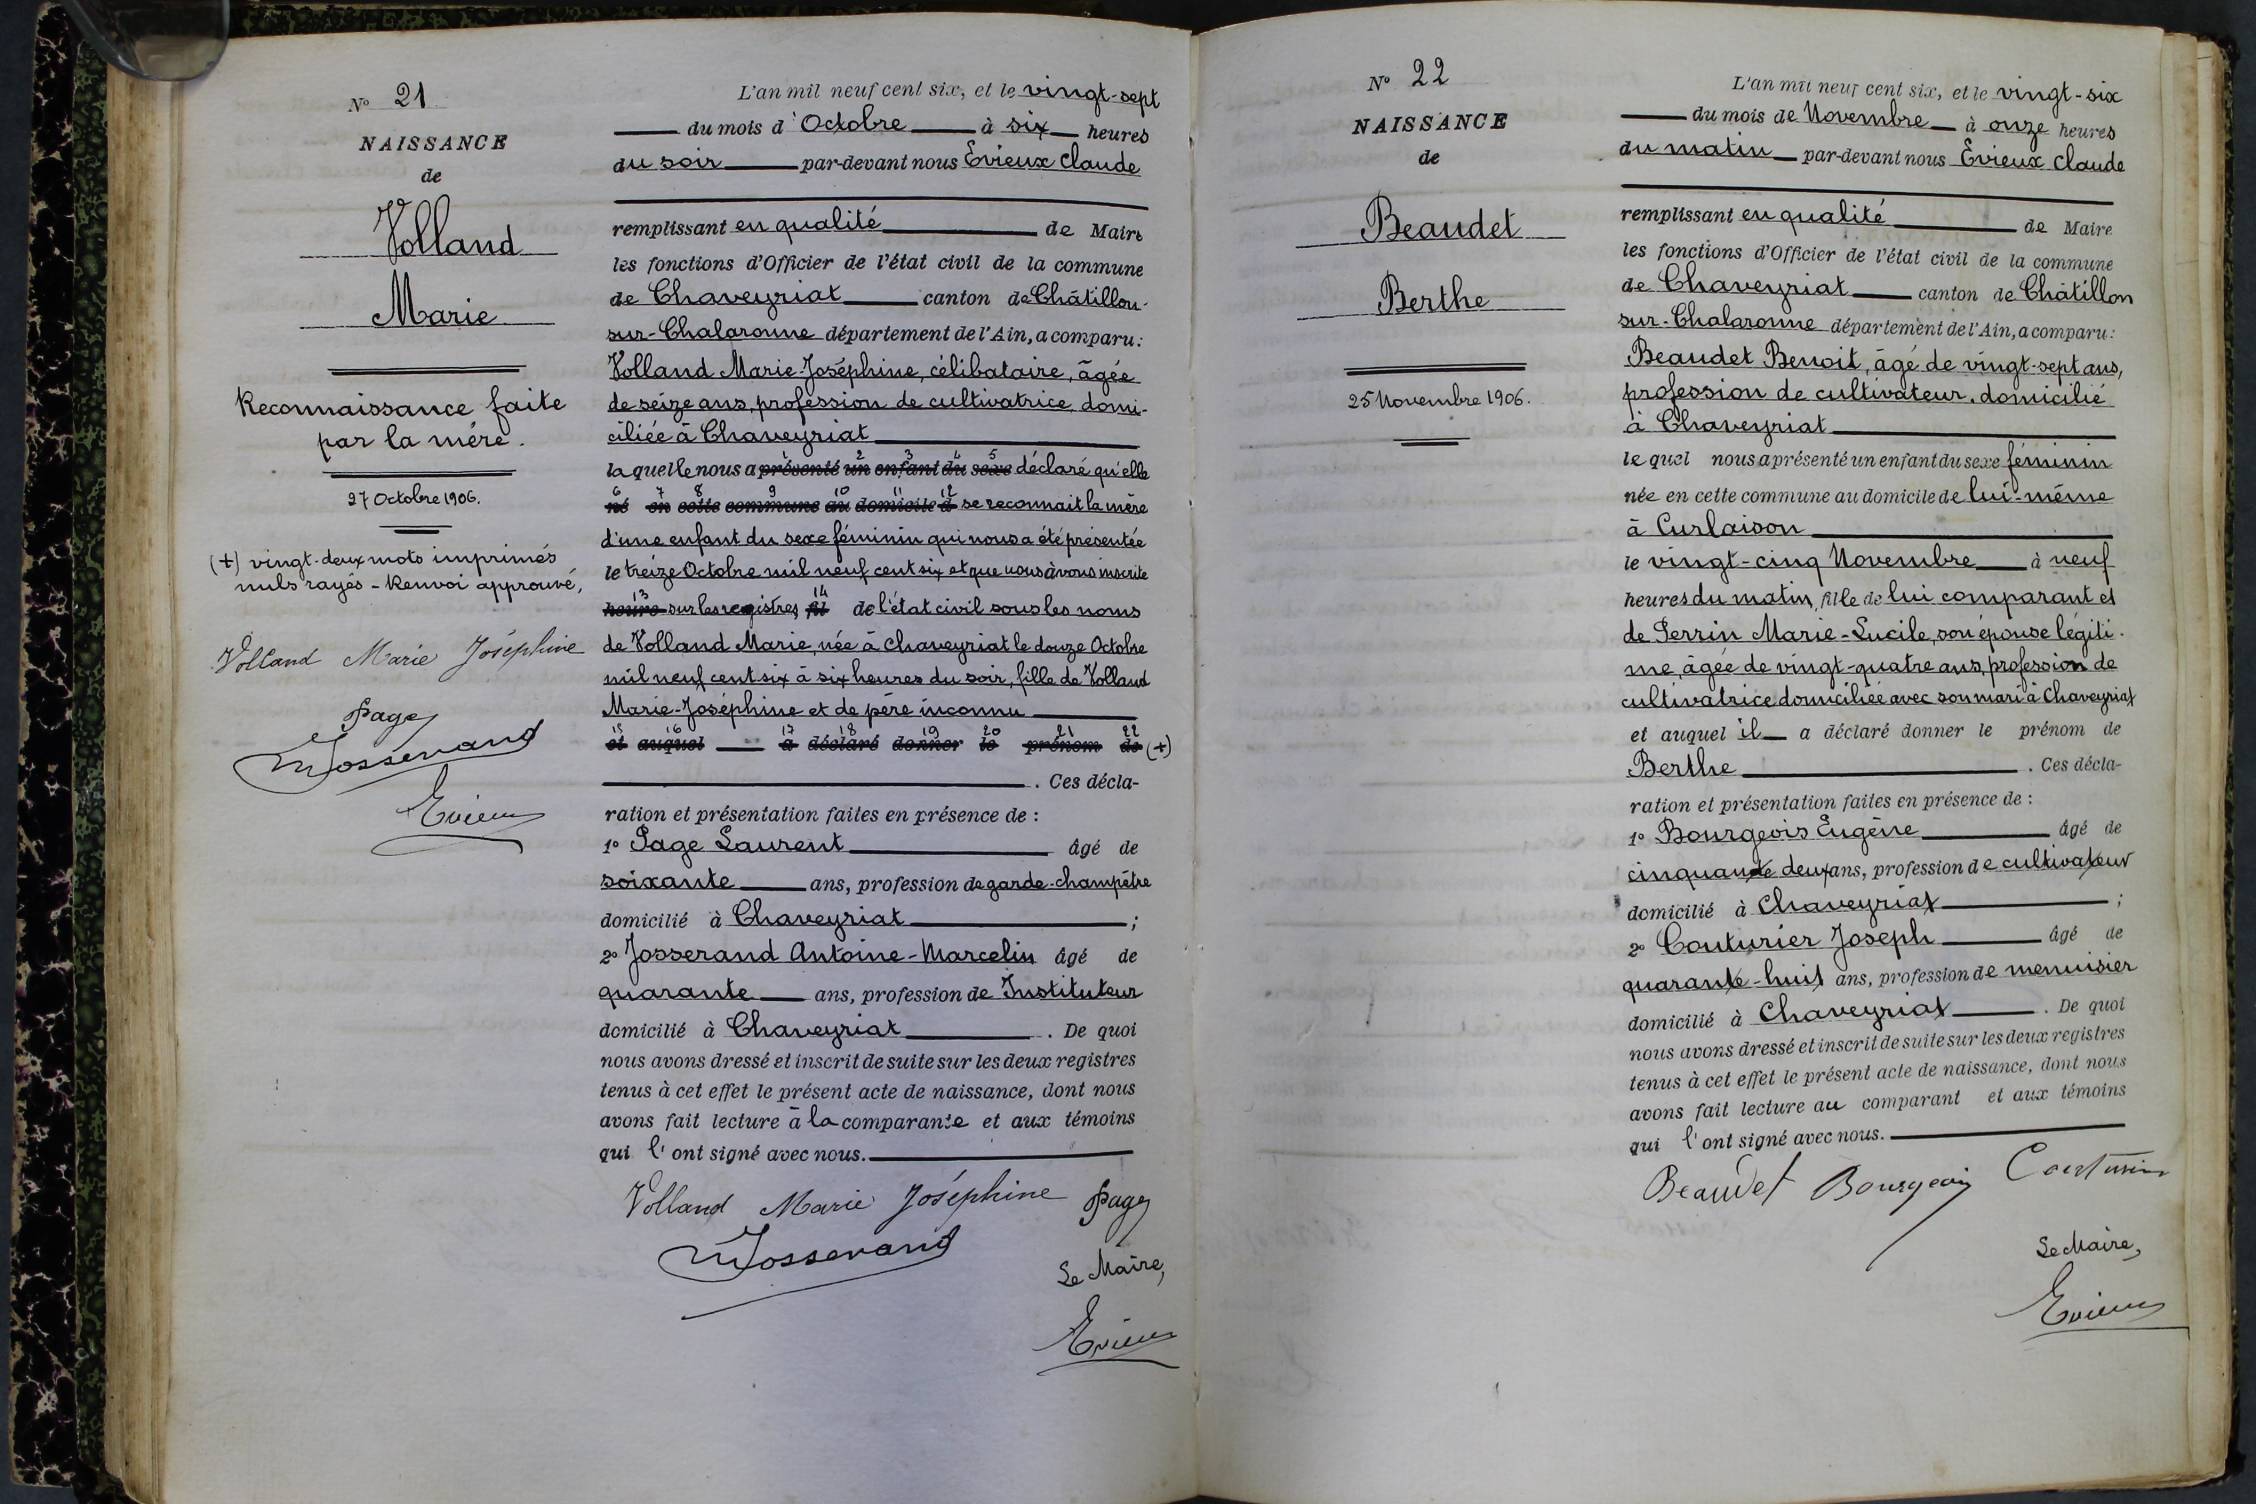 N° 21
NAISSANCE
de
Volland
Marie
Reconnaissance faite
par la mère.
27 Octobre 1906.
(+) vingt-deux mots imprimés
nuls rayés - Renvoi approuvé,
Volland Marie Joséphine
Page
Josserand
Evieux
L'an mil neuf cent six, et le vingt-sept
du mois d'Octobre à six heures
du soir par-devant nous Evieux Claude
remplissant en qualité de Maire
les fonctions d'Officier de l'état civil de la commune
de Chaveyriat canton de Châtillon-
sur-Chalaronne département de l'Ain, a comparu:
Volland Marie-Joséphine, célibataire, âgée
de seize ans, profession de cultivatrice, domi-
ciliée à Chaveyriat
laquelle nous a présenté un enfant du sexe déclaré qu'elle
né en cette commune au domicile d se reconnait la mère
d'une enfant du sexe féminin qui nous a été présentée
le treize Octobre mil neuf cent six et que nous avons inscrite
heure sur les registres fil de l'état civil sous les noms
de Volland Marie, née à Chaveyriat le douze Octobre
mil neuf cent six à six heures du soir, fille de Volland
Marie-Joséphine et de père inconnu
et auquel a déclaré donner le prénom de (+)
. Ces décla-
ration et présentation faites en présence de :
1° Page Laurent âgé de
soixante ans, profession de garde-champêtre
domicilié à Chaveyriat ;
2° Josserand Antoine-Marcelin âgé de
quarante ans, profession de Instituteur
domicilié à Chaveyriat . De quoi
nous avons dressé et inscrit de suite sur les deux registres
tenus à cet effet le présent acte de naissance, dont nous
avons fait lecture à la comparante et aux témoins
qui l'ont signé avec nous.
Volland Marie Joséphine Page
Josserand
Le Maire,
Evieux
N° 22
NAISSANCE
de
Beaudet
Berthe
25 Novembre 1906.
L'an mil neuf cent six, et le vingt-six
du mois de Novembre à onze heures
du matin par-devant nous Evieux Claude
remplissant en qualité de Maire
les fonctions d'Officier de l'état civil de la commune
de Chaveyriat canton de Châtillon
sur-Chalaronne département de l'Ain, a comparu:
Beaudet Benoit, âgé de vingt-sept ans,
profession de cultivateur, domicilié
à Chaveyriat
lequel nous a présenté un enfant du sexe féminin
née en cette commune au domicile de lui-même
à Curlaison
le vingt-cinq Novembre à neuf
heures du matin, fille de lui comparant et
de Perrin Marie-Lucile, son épouse légiti-
me, âgée de vingt-quatre ans, profession de
cultivatrice domiciliée avec son mari à Chaveyriat
et auquel il a déclaré donner le prénom de
Berthe . Ces décla-
ration et présentation faites en présence de :
1° Bourgeois Eugène âgé de
cinquante deux ans, profession de cultivateur
domicilié à Chaveyriat ;
2° Couturier Joseph âgé de
quarante-huit ans, profession de menuisier
domicilié à Chaveyriat . De quoi
nous avons dressé et inscrit de suite sur les deux registres
tenus à cet effet le présent acte de naissance, dont nous
avons fait lecture au comparant et aux témoins
qui l'ont signé avec nous.
Beaudet Bourgeois Couturier
Le Maire,
Evieux